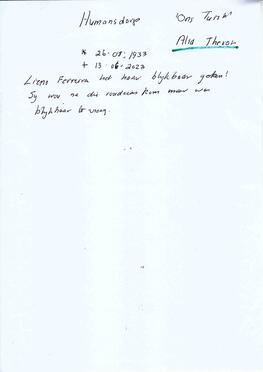 Humansdorp 'Ons Tuiste'
Alta Theron
* 26.07.1937
+ 13.06.2023
Liens Ferreira het haar blykbaar geken!
Sy wou na die roudiens kom maar was
blykbaar te vroeg.